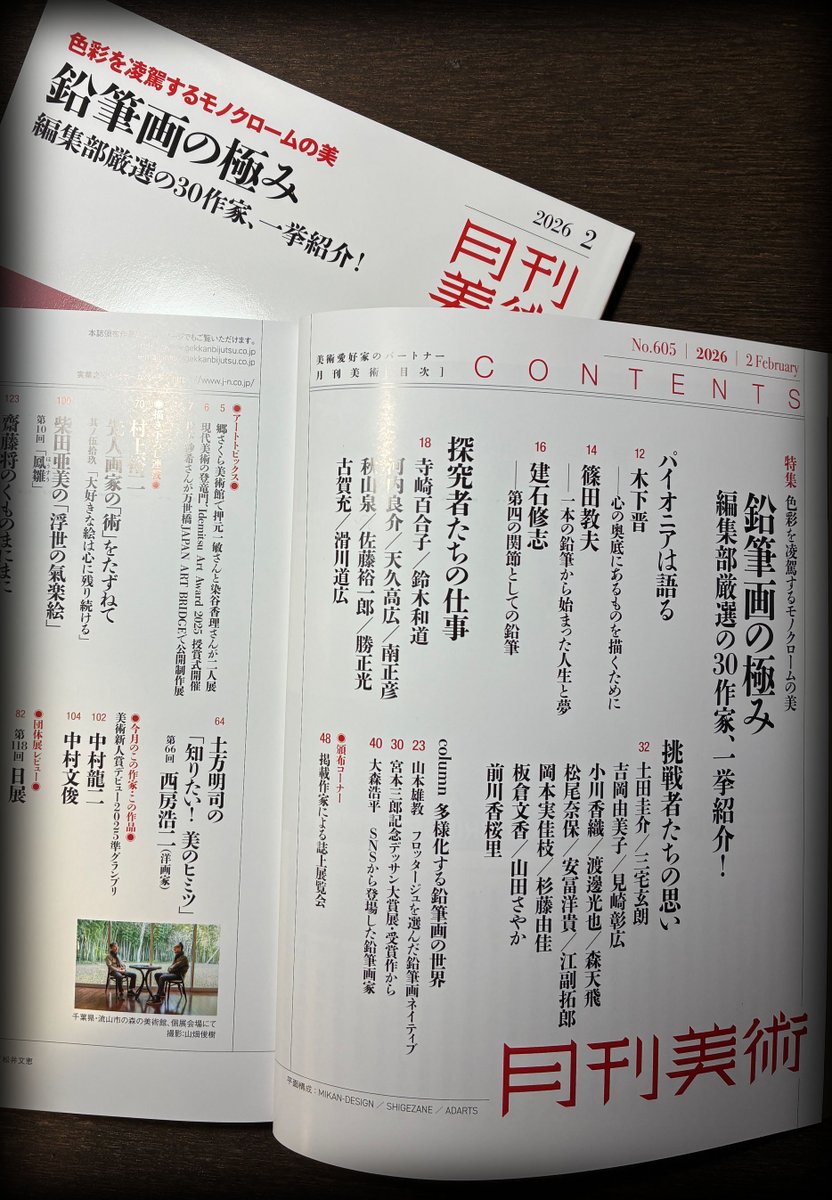 色彩を凌駕するモノクロームの美
鉛筆画の極み
編集部厳選の30作家、一挙紹介！
2026 2
月刊
美術
美術愛好家のパートナー
月刊美術［目次］
CONTENTS
No.605 | 2026 | 2 February
特集 色彩を凌駕するモノクロームの美
鉛筆画の極み
編集部厳選の30作家、一挙紹介！
パイオニアは語る
12 木下晋
―心の奥底にあるものを描くために
14 篠田教夫
―一本の鉛筆から始まった人生と夢
16 建石修志
―第四の関節としての鉛筆
探究者たちの仕事
18 寺崎百合子／鈴木和道
河内良介／天久高広／南正彦
秋山泉／佐藤裕一郎／勝正光
古賀充／滑川道広
挑戦者たちの思い
32 土田圭介／三宅玄朗
吉岡由美子／見崎彰広
小川香織／渡邊光也／森天飛
松尾奈保／安冨洋貴／江副拓郎
岡本実佳枝／杉藤由佳
板倉文香／山田さやか
前川香桜里
column 多様化する鉛筆画の世界
23 山本雄教 フロッタージュを選んだ鉛筆画ネイティブ
30 宮本三郎記念デッサン大賞展・受賞作から
40 大森浩平 SNSから登場した鉛筆画家
●頒布コーナー
48 掲載作家による誌上展覧会
月刊美術
平面構成：MIKAN-DESIGN ／ SHIGEZANE ／ ADARTS
ekkanbijutsu.co.jp
www.j-n.co.jp/
●アートトピックス●
5 郷さくら美術館で押元一敏さんと染谷香理さんが二人展
6 現代美術の登竜門「Idemitsu Art Award 2025」授賞式開催
7
さんが万世橋「JAPAN ART BRIDGE」で公開制作展
村上裕二
其ノ伍拾玖「大好きな絵は心に残り続ける」
画家の「術」をたずねて
100 柴田亜美の「浮世の氣楽絵」
第10回「鳳雛」
ほうすう
123 齋藤将のくものまにまに
64 土方明司の
「知りたい！ 美のヒミツ」
第66回 西房浩二（洋画家）
●今月のこの作家・この作品●
美術新人賞デビュー2025準グランプリ
102 中村龍二
104 中村文俊
●団体展レビュー●
82 第118回 日展
千葉県・流山市の森の美術館、個展会場にて
撮影：山畑俊樹
松井文恵